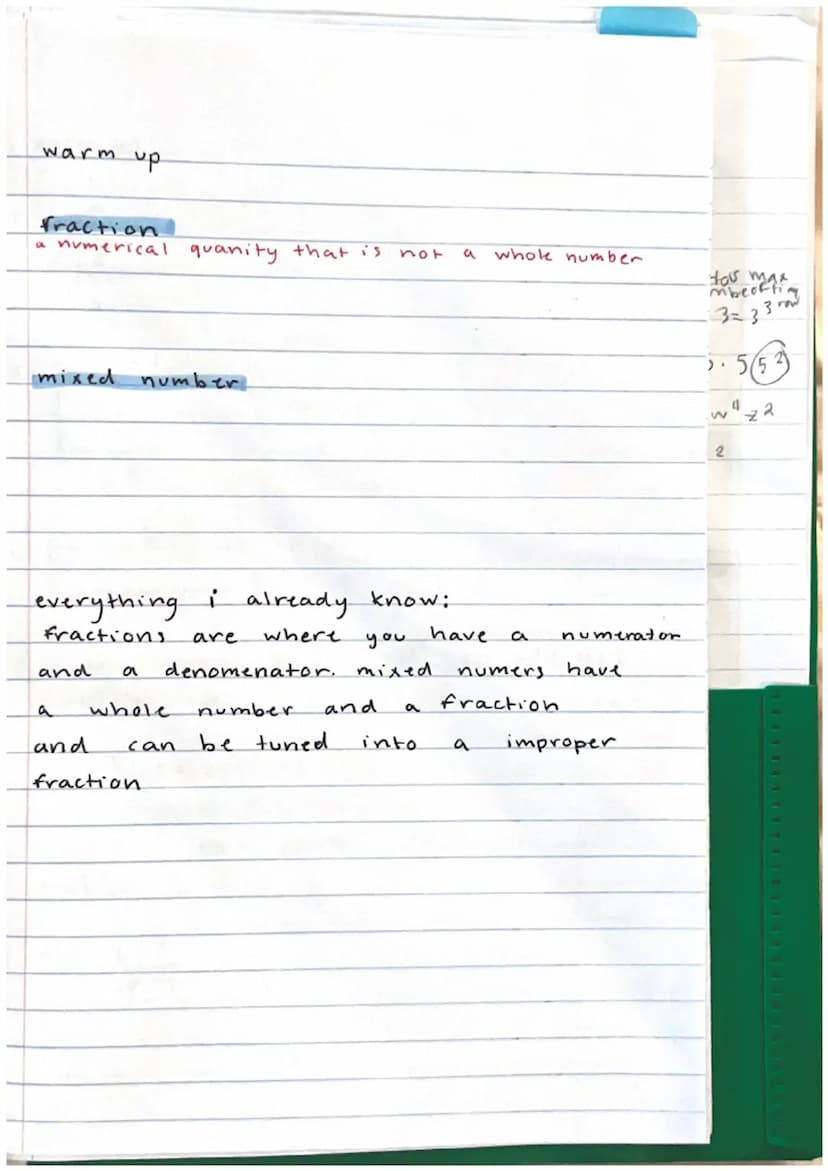 warm up
fraction
a numerical quanity that is not a whole number
mixed number
everything i already know:
fractions are where you have a numerator
and a denomenator. mixed numers have
a whole number and a fraction
and can be tuned into a improper
fraction
max
3=3³ row
5(5²)
w⁴z²
2